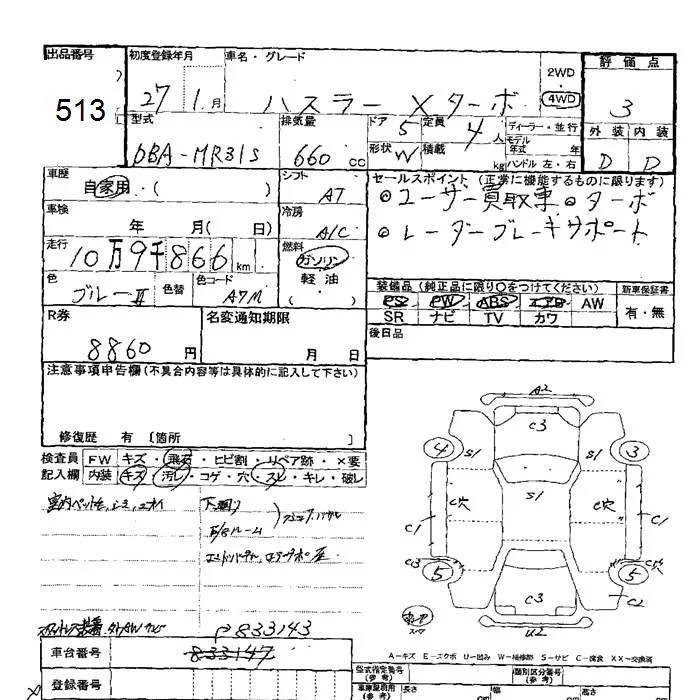 出品番号
513
初度登録年月
27 1月
車名・グレード
ハスラー Xターボ
2WD
4WD
評価点
3
外装 内装
D D
型式
DBA-MR31S
排気量
660 cc
ドア 5
形状 W
定員 4人
積載 kg
ディーラー・並行
モデル年式 年
ハンドル 左・右
車歴
自家用・( )
シフト
AT
セールスポイント (正常に機能するものに限ります)
◎ユーザー買取車 ◎ターボ
◎レーダーブレーキサポート
車検
年 月( 日)
冷房
A/C
走行
10万9千866km
燃料
ガソリン
軽油
( )
色
ブルーII
色替
色コード
A7M
装備品 (純正品に限り○をつけてください)
新車保証書
PS PW ABS エアB AW
SR ナビ TV カワ
有・無
R券
8860円
名変通知期限
月 日
後日品
注意事項申告欄(不具合内容等は具体的に記入して下さい)
修復歴 有 〔箇所 〕
検査員
記入欄
FW キズ・飛石・ヒビ割・リペア跡・×要
内装 キズ・汚レ・コゲ・穴・スレ・キレ・破レ
下廻り
A2
C3
4 3
S1 S1
S1
C穴 C穴
C1 C1
C3
5 5
C2
C3
U2
A-キズ E-エクボ U-凹み W-補修跡 S-サビ C-腐食 XX-交換済
833143
車台番号
833147
登録番号
型式指定番号
(参考)
類別区分番号
(参考)
長さ cm
幅 cm
高さ cm